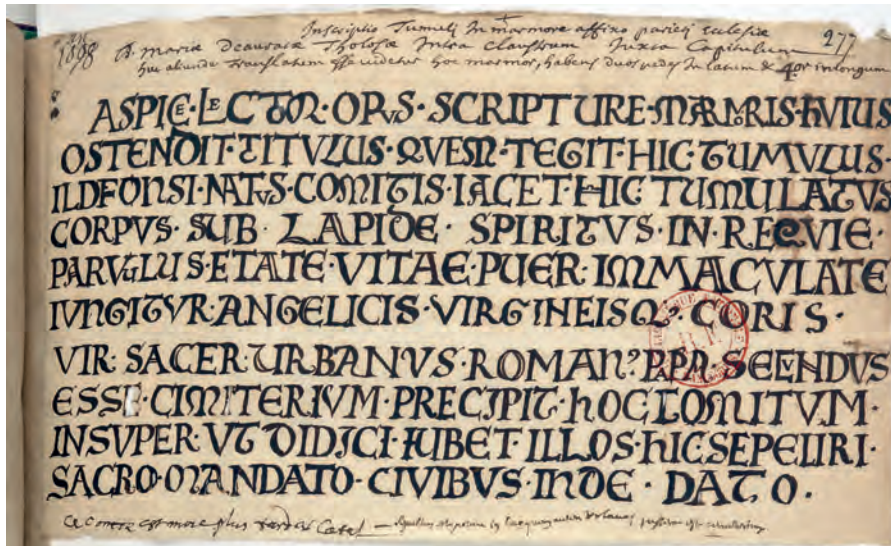 Inscriptio Tumuli In marmore affixo parieti ecclesiæ 277
1898 B. mariæ Deauratæ Tholosæ Intra claustrum Iuxta Capitulum
hoc aliunde translatum esse videtur hoc marmor, habens duos pedes In latum & 4or in longum
ASPICE·LECTOR·OPVS·SCRIPTURE·MARMORIS·HVIUS
OSTENDIT·TITVLUS·QVEM·TEGIT·HIC·TUMVLUS·
ILDFONSI·NATVS·COMITIS·IACET·HIC TUMULATVS
CORPVS·SUB·LAPIDE·SPIRITVS·IN·REQVIE·
PARVVLUS·ETATE·VITAE·PUER·IMMACVLATE
IVNGITVR·ANGELICIS·VIRGINEISQ·CORIS·
VIR·SACER·URBANVS·ROMAN'·PAPA·SECVNDVS
ESSE·CIMITERIVM·PRECIPIT·HOC COMITVM·
INSVPER·VT DIDICI·IUBET·ILLOS·HIC SEPELIRI·
SACRO·MANDATO·CIVIBVS·INDE·DATO·
Ce conte est mort plus tard